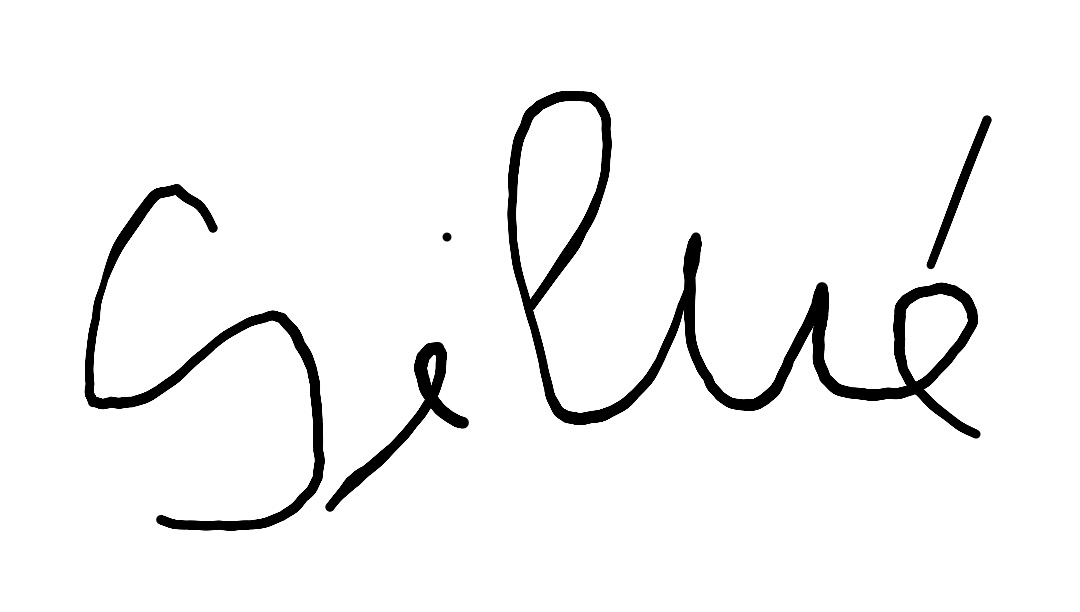 Silué